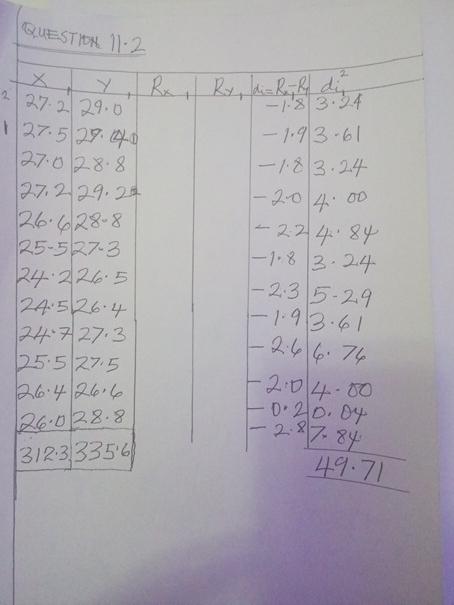 QUESTION 11.2
X Y Rx Ry di=Rx-Ry di²
2 27.2 29.0 -1.8 3.24
1 27.5 29.40 -1.9 3.61
27.0 28.8 -1.8 3.24
27.2 29.2 -2.0 4.00
26.6 28.8 -2.2 4.84
25.5 27.3 -1.8 3.24
24.2 26.5 -2.3 5.29
24.5 26.4 -1.9 3.61
24.7 27.3 -2.6 6.76
25.5 27.5 -2.0 4.00
26.4 26.6 -0.2 0.04
26.0 28.8 -2.8 7.84
312.3 335.6 49.71